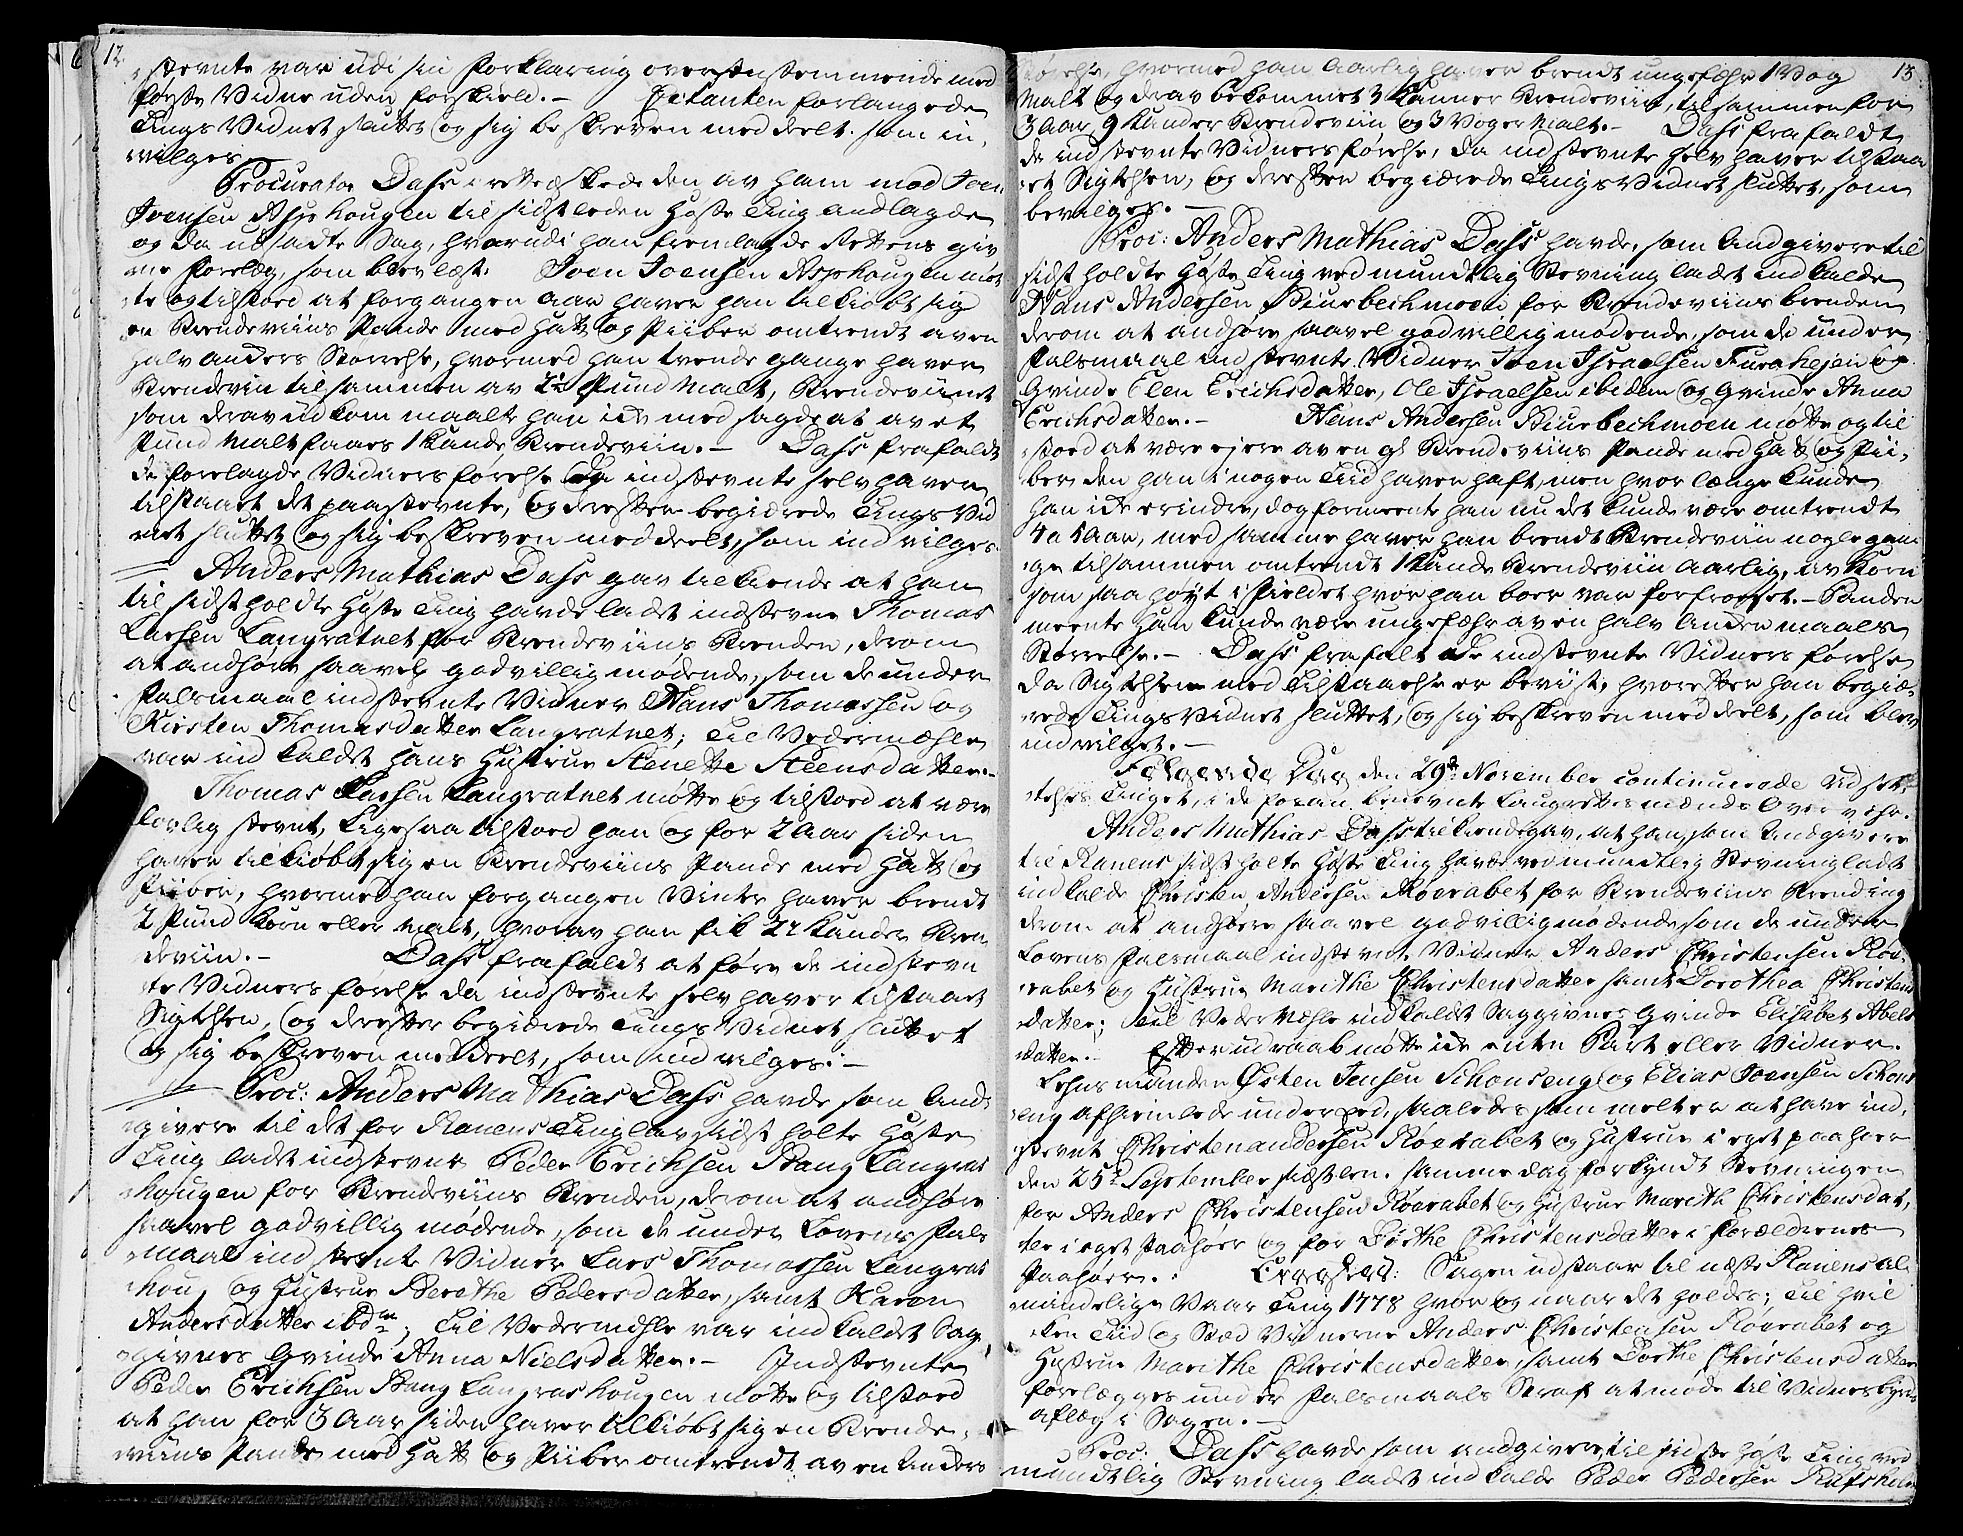 12.
stevnte var udi sin Forklaring overensstemmende med
første Vidne uden forskield. — Citanten forlangede
TingsVidnet sluttet og sig beskreven meddeelt. som ind-
vilges.
Procurator Dass i rette æskede den av ham mod Joen
Joensen Asphougen til sidstleden Høste Ting andlagde
og da udsadte Sag, hvorudi han fremlagde Rettens giv
ne Forelæg, som blev læst. Joen Joensen Asphougen mød
te og tilstoed at forgangen aar haver han tilkiøbt sig
en Brendeviins Pande med Hatt og Piiber omtrendt av en
halv anders Størrelse, hvormed han trende gange haver
Brendeviin tilsammen av 2½ Pund Malt, Brendeviinet
som derav udkom maalte han icke med sagde at av et
Pund Malt faaes 1 Kande Brendeviin. — Dass frafaldt
de forelagde Vidners førelse da indstevnte selv haver
tilstaaet det paastevnte, og derefter begierede TingsVid
net sluttet og sig beskreven meddeelt, som indvilges.
Anders Mathias Dass gav tilkiende at han
til sidst holdte Høste Ting havde ladet indstevne Thomas
Larsen Langvatnet for Brendeviins Brenden, derom
at andhøre saavel godvillig mødende, som de under
Falsmaal indstevnte Vidner Hans Thomassen og
Kirsten Thomasdatter Langvatnet; Til Vedermæhle
var ind kaldet hans Hustrue Stenette Steensdatter. —
Thomas Larsen Langvatnet mødte og tilstoed at være
lovlig stevnt, Ligesaa tilstoed han og for 2 Aar siden
haver tilkiøbt sig en Brendeviins Pande med Hatt og
Piiber, hvormed han forgangen Vinter haver brendt
2 Pund Korn eller Malt, hvorav han fik 2½ Kander Bren
deviin. — Dass frafaldt at føre de indstevn
te Vidners førelse da indstevnte selv haver tilstaaet
Sigtelsen, og derefter begierede TingsVidnet sluttet
og sig beskreven meddeelt, som indvilges. —
Proc: Anders Mathias Dass havde som And-
givere til det for Ranens Tinglav sidst holte Høste
Ting ladet indstevne Peder Erichsen Stang Langvas
hougen for Brendeviins Brenden, derom at andhøre
saavel godvillig mødende, som de under Lovens Fals
maal indstevnte Vidner Lars Thomassen Langvas
houg og Hustrue Berethe Pedersdatter, samt Karen
Andersdatter ibdm; Til Vedermæhle var indkaldet Sag
givnes Qvinde Anna Nielsdatter. — Indstevnte
Peder Erichsen Stang Langvashougen mødte og tilstoed
at han for 3 Aar siden haver tilkiøbt sig en Brende-
viins Pande med Hatt og Piiber omtrendt av en Anders
13
Størelse, hvormed han Aarlig haver brendt ungefæhr 1 Vog
Malt og derav bekommet 3 Kanner Brendeviin, tilsammen for
3 Aar, 9 Kander Brendeviin og 3 Voger Malt. — Dass frafaldt
de indstevnte Vidners førelse, da indstevnte selv haver tilstaa
et Sigtelsen, og derefter begierede TingsVidnet sluttet, som
bevilges. —
Proc: Anders Mathias Dass havde, som Andgivere til
sidst holdte Høste Ting ved mundtlig Stevning ladet ind kalde
Hans Andersen Biurbechmoen for Brendeviins brenden
derom at andhøre saavel godvillig mødende, som de under
Falsmaal indstevnte Vidner Iver Israelsen Furahejen og
Qvinde Elen Erichsdatter, Ole Israelsen ibidem og Qvinde Anna
Erichsdatter. — Hans Andersen Biurbechmoen mødte og til
stoed at være ejere av en gl Brendeviins Pande med Hatt og Pii-
ber, den han i nogen Tiid haver haft, men hvor længe kunde
han icke erindre, dog formeente han nu det kunde være omtrendt
4 a 5 Aar, med samme haver han brendt Brendeviin nogle gan
ge tilsammen omtrendt 1 Kande Brendeviin Aarlig, av Korn
som saa høyt i Fieldet hvor han boer var forfrosset. — Panden
meente han kunde være ungefæhr av en halv Anden maals
Størrelse. — Dass frafalt de indstevnte Vidners førelse
da Sigtelsen med Tilstaaelse er beviist, hvorefter han begiæ-
rede TingsVidnet sluttet, og sig beskreven meddeelt, som blev
indvilget. —
Følgende Dag den 29de November continuerede Udset-
telses Tinget, i de foran benevnte Laugrettesmænds Overværelse.
Anders Mathias Dass tilkiendegav, at han som Andgivere
til Ranens sidst holte Høste Ting havde ved mundtlig Stevning ladet
indkalde Christen Andersen Røevabet for Brendeviins Brending
derom at andhøre saavel godvillig mødende som de under
Lovens Falsmaal indstevnte Vidner Anders Christensen Røe-
vabet og Hustrue Marithe Christensdatter samt Dorothea Christens
datter; Til Vedermæhle indkaldet Saggivnes Qvinde Elisabet Abels
datter. Efter udraab mødte icke enten Part eller Vidner.
Lehnsmanden Østen Jensen Schonseng og Elias Joensen Schons
eng afhiemlede under Eed, saaledes som melt er at have ind-
stevnt Christen Andersen Røevabet og Hustrue i eget paahør
den 25de September sidstl. Samme dag forkyndt Stevningen
for Anders Christensen Røevabet og Hustrue Marith Christensdat-
ter i eget Paahør og for Dorthe Christensdatter i Forældrenes
Paahøer. Eragtet: Sagen udstaar til næste Ranens al
mindelige Vaar Ting 1778 hvor og naar det holdes; Til hvil
ken Tiid og Sted Vidnerne Anders Christensen Røevabet og
Hustrue Marithe Christensdatter, samt Dorthe Christensdatter
forelægges under Falsmaals Straf at møde til Vidnesbyrds
aflæg i Sagen. —
Proc: Dass havde som andgivere til sidste Høste Ting ved
mundtlig Stevning ladet indkalde Peder Pedersen